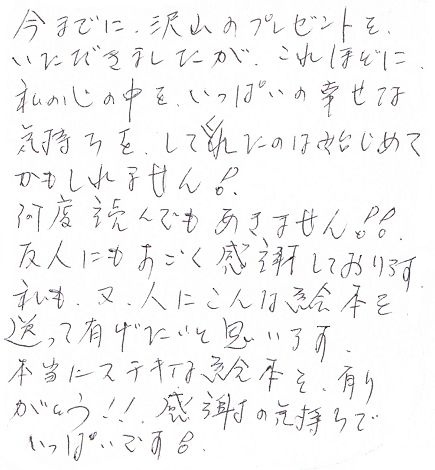 今までに、沢山のプレゼントを、
いただきましたが、これほどに、
私の心の中を、いっぱいの幸せな
気持ちを、してくれたのは始じめて
かもしれません!
何度読んでもあきません!!
友人にもすごく感謝しております。
私も、又、人にこんな絵本を
送って有げたいと思います。
本当にステキな絵本を、有り
がとう!!感謝の気持ちで
いっぱいです!